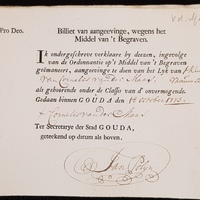 Pro Deo.
Billiet van aangeevinge, wegens het
Middel van 't Begraven.
IK ondergeschreve verklaare by deezen, ingevolge
van de Ordonnantie op 't Middel van 't Begraven
geëmaneert, aangeevinge te doen van het Lyk van
van Cornelis van der
als gehoorende onder de Classis van d' onvermogende
Gedaan binnen GOUDA den October
Cornelis van der
Ter Secretarye der Stad GOUDA,
geteekend op datum als boven.
Jan